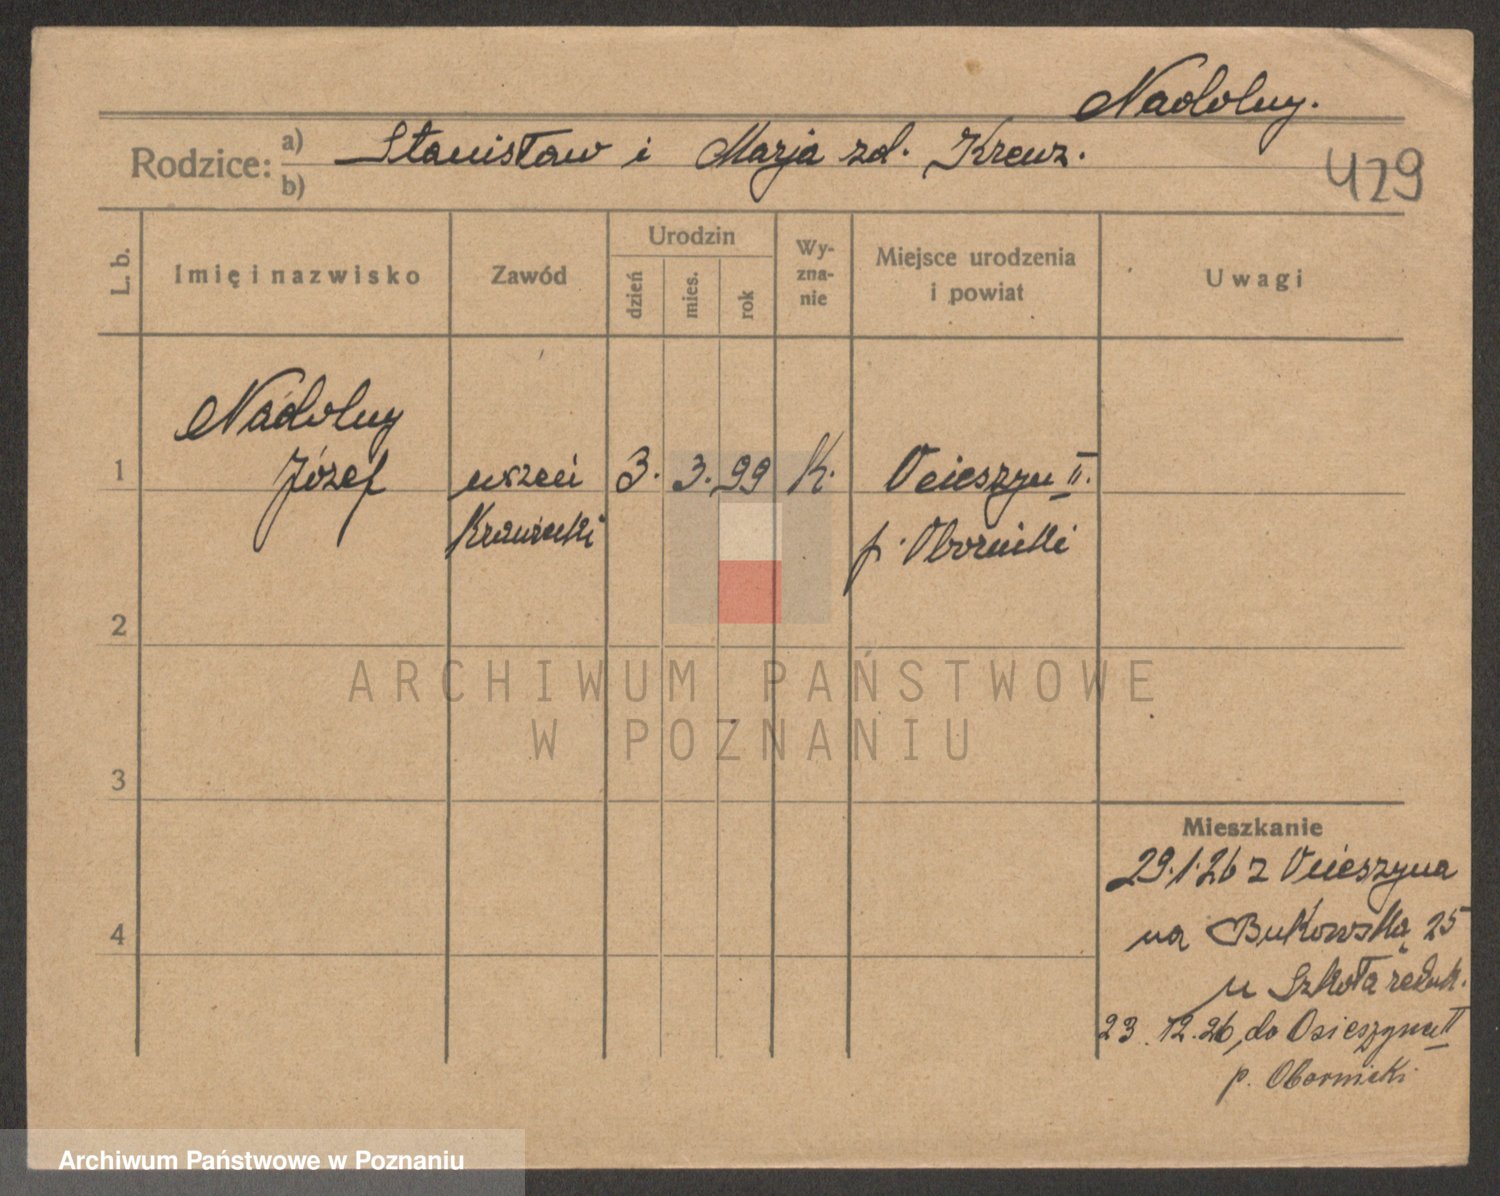 Nadolny.
Rodzice: a) Stanisław i Marja zd. Kreuz.
b)
429
L. b.
Imię i nazwisko
Zawód
Urodzin
dzień
mies.
rok
Wy-
zna-
nie
Miejsce urodzenia
i powiat
Uwagi
Nadolny
1 Józef uczeń 3. 3. 99 K. Ocieszyn II.
Krawiecki p. Obornicki
2
ARCHIWUM PAŃSTWOWE
W POZNANIU
3
Mieszkanie
29.1.26 z Ocieszyna
4 na Bukowską 25
u Szkoła
23.12.26, do Osieszyna II
p. Obornicki
Archiwum Państwowe w Poznaniu